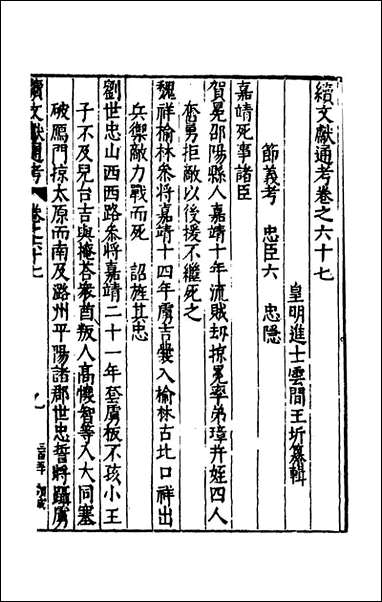 續文獻通考卷之六十七
皇明進士雲間王圻纂輯
節義考　忠臣六　忠隱
嘉靖死事諸臣
賀冕邵陽縣人嘉靖十年流賊刼掠冕率弟璋幷姪四人
奮勇拒敵以後援不繼死之
魏祥榆林叅將嘉靖十四年虜吉囊入榆林古北口祥出
兵禦敵力戰而死　詔旌其忠
劉世忠山西西路叅將嘉靖二十一年套虜板不孩小王
子不及兒台吉與掩荅衆酋叛人高懷智等入大同塞
破鴈門掠太原而南及潞州平陽諸郡世忠誓將躡虜
續文獻通考　卷之六十七